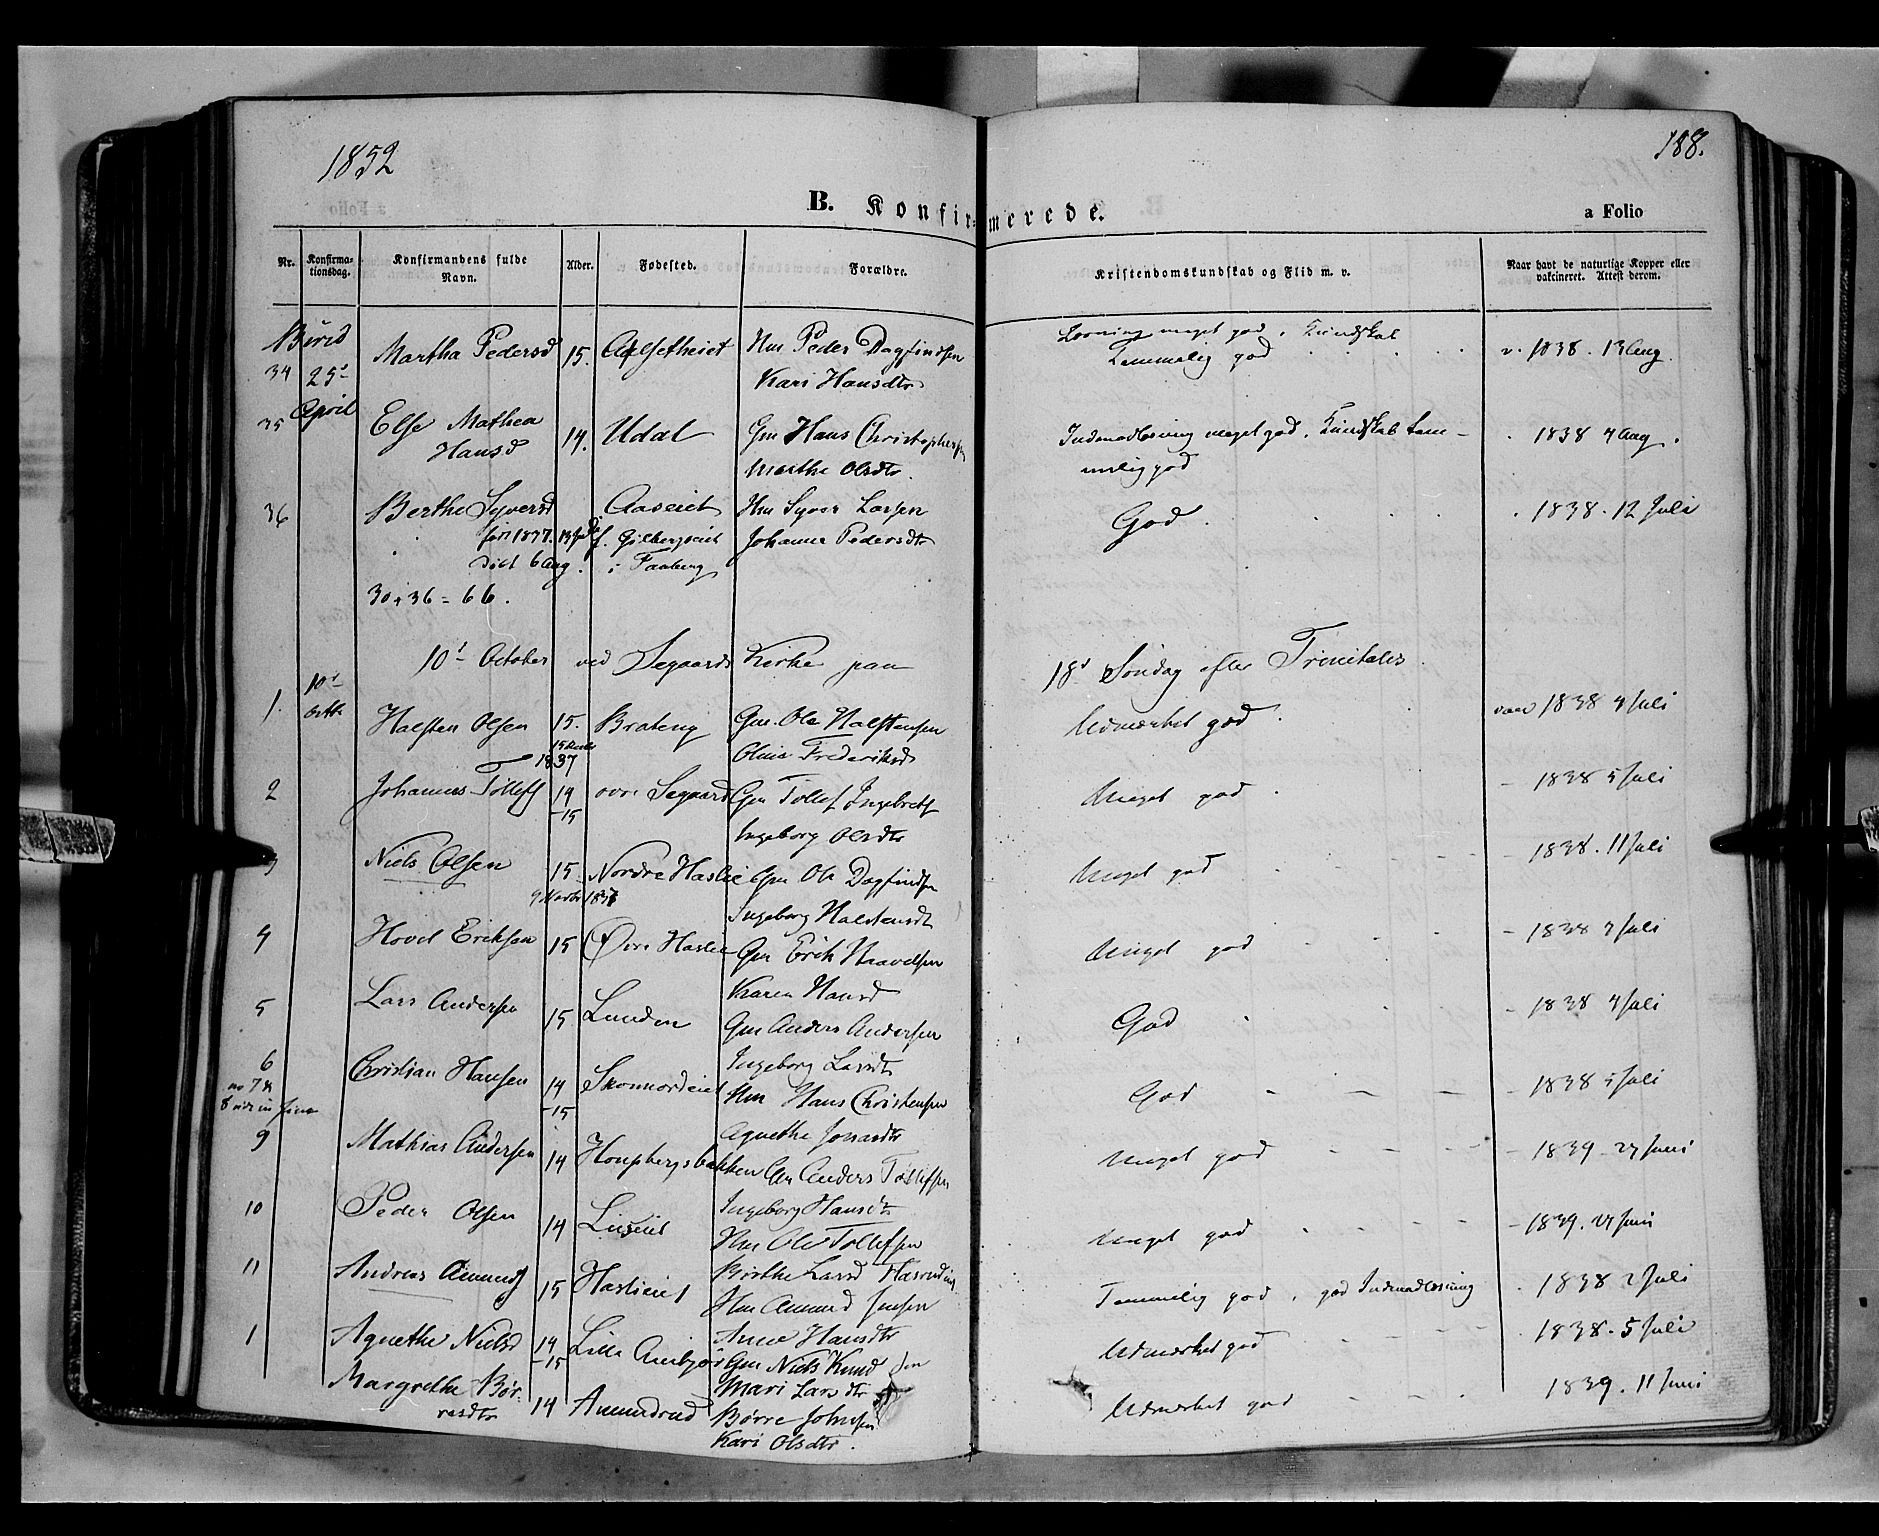 1852
188.
B. Konfirmerede.
a Folio
Nr. Konfirmationsdag. Konfirmandens fulde Navn. Alder. Fødested. Forældre. Kristendomskundskab og Flid m. v. Naar havt de naturlige Kopper eller vakcineret. Attest derom.
Birid
34 25d April Martha Pedersd 15. Hm Peder Dagfindsen meget god. Kundskab v. 1838. 13 Aug.
Kari Hansdtr Temmelig god
35 Else Mathea 14. Udal Gm Hans Christophersen Indenadlæsning meget god, Kundskab tem- 1838 4 Aug.
Hansd Marthe Olsdtr melig god
36 Berthe Syversd Aaseiet Hm Syver Larsen God 1838. 12 Juli
Johanne Pedersdtr
død 6 Aug. i Faaberg
30 + 36 = 66.
10d October ved Segaards Kirke paa 18d Søndag efter Trinitatis
1. 10d Octbr Halsten Olsen 15. Brateng Gm. Ole Halstensen Udmærket god vacc 1838 4 Juli
1837 Olina Frederiksd
2 Johannes Tollefs 14 -15 øvre Segaard Gm Tollef Ingebrets Meget god 1838 5 Juli
Ingeborg Olsdtr
3 Niels Olsen 15 Nordre Haslie Gm Ole Dagfindsen Meget god 1838. 11 Juli
Ingeborg Halstensdt
4 Hovel Eriksen 15 Øvre Haslie Gm Erik Haavelsen Meget god 1838 7 Juli
Karen Hansd
5 Lars Andersen 15 Lunden Gm Anders Andersen God 1838 4 Juli
Ingeborg Larsdt
6 Christian Hansen 14 -15 Skonnordeiet Hm Hans Christensen God 1838 5 Juli
no 7 &
8
Agnethe Jonsdtr
9 Mathias Andersen 14 Gm Anders Tollefsen Meget god 1839 27 Juni
Ingeborg Hansdt
10 Peder Olsen 14 Hm Ole Tollefsen Meget god 1839. 27 Juni
Birthe Larsd
11 Andreas Amunds 15 Haslieiet Hm Amund Jensen Temmelig god, god Indenadlæsning 1838 2 Juli
Anne Hansdtr
1 Agnethe Nielsd 14 -15 Lille Gm Niels Knudsen Udmærket god 1838. 5 Juli
Mari Larsdtr
Margrethe Bør- 14 Amundrud Børre Johnsen Udmærket god 1839. 11 Juni
resdtr Kari Olsdtr.